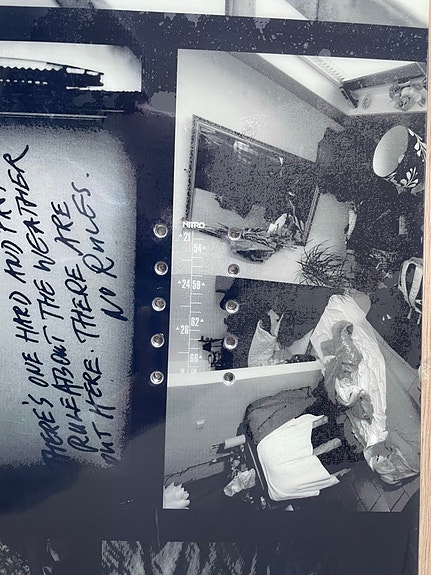 THERE'S ONE HARD AND FAST
RULE ABOUT THE WEATHER
OUT HERE. THERE ARE
NO RULES.
NITRO
21
54
24
58
62
26
66